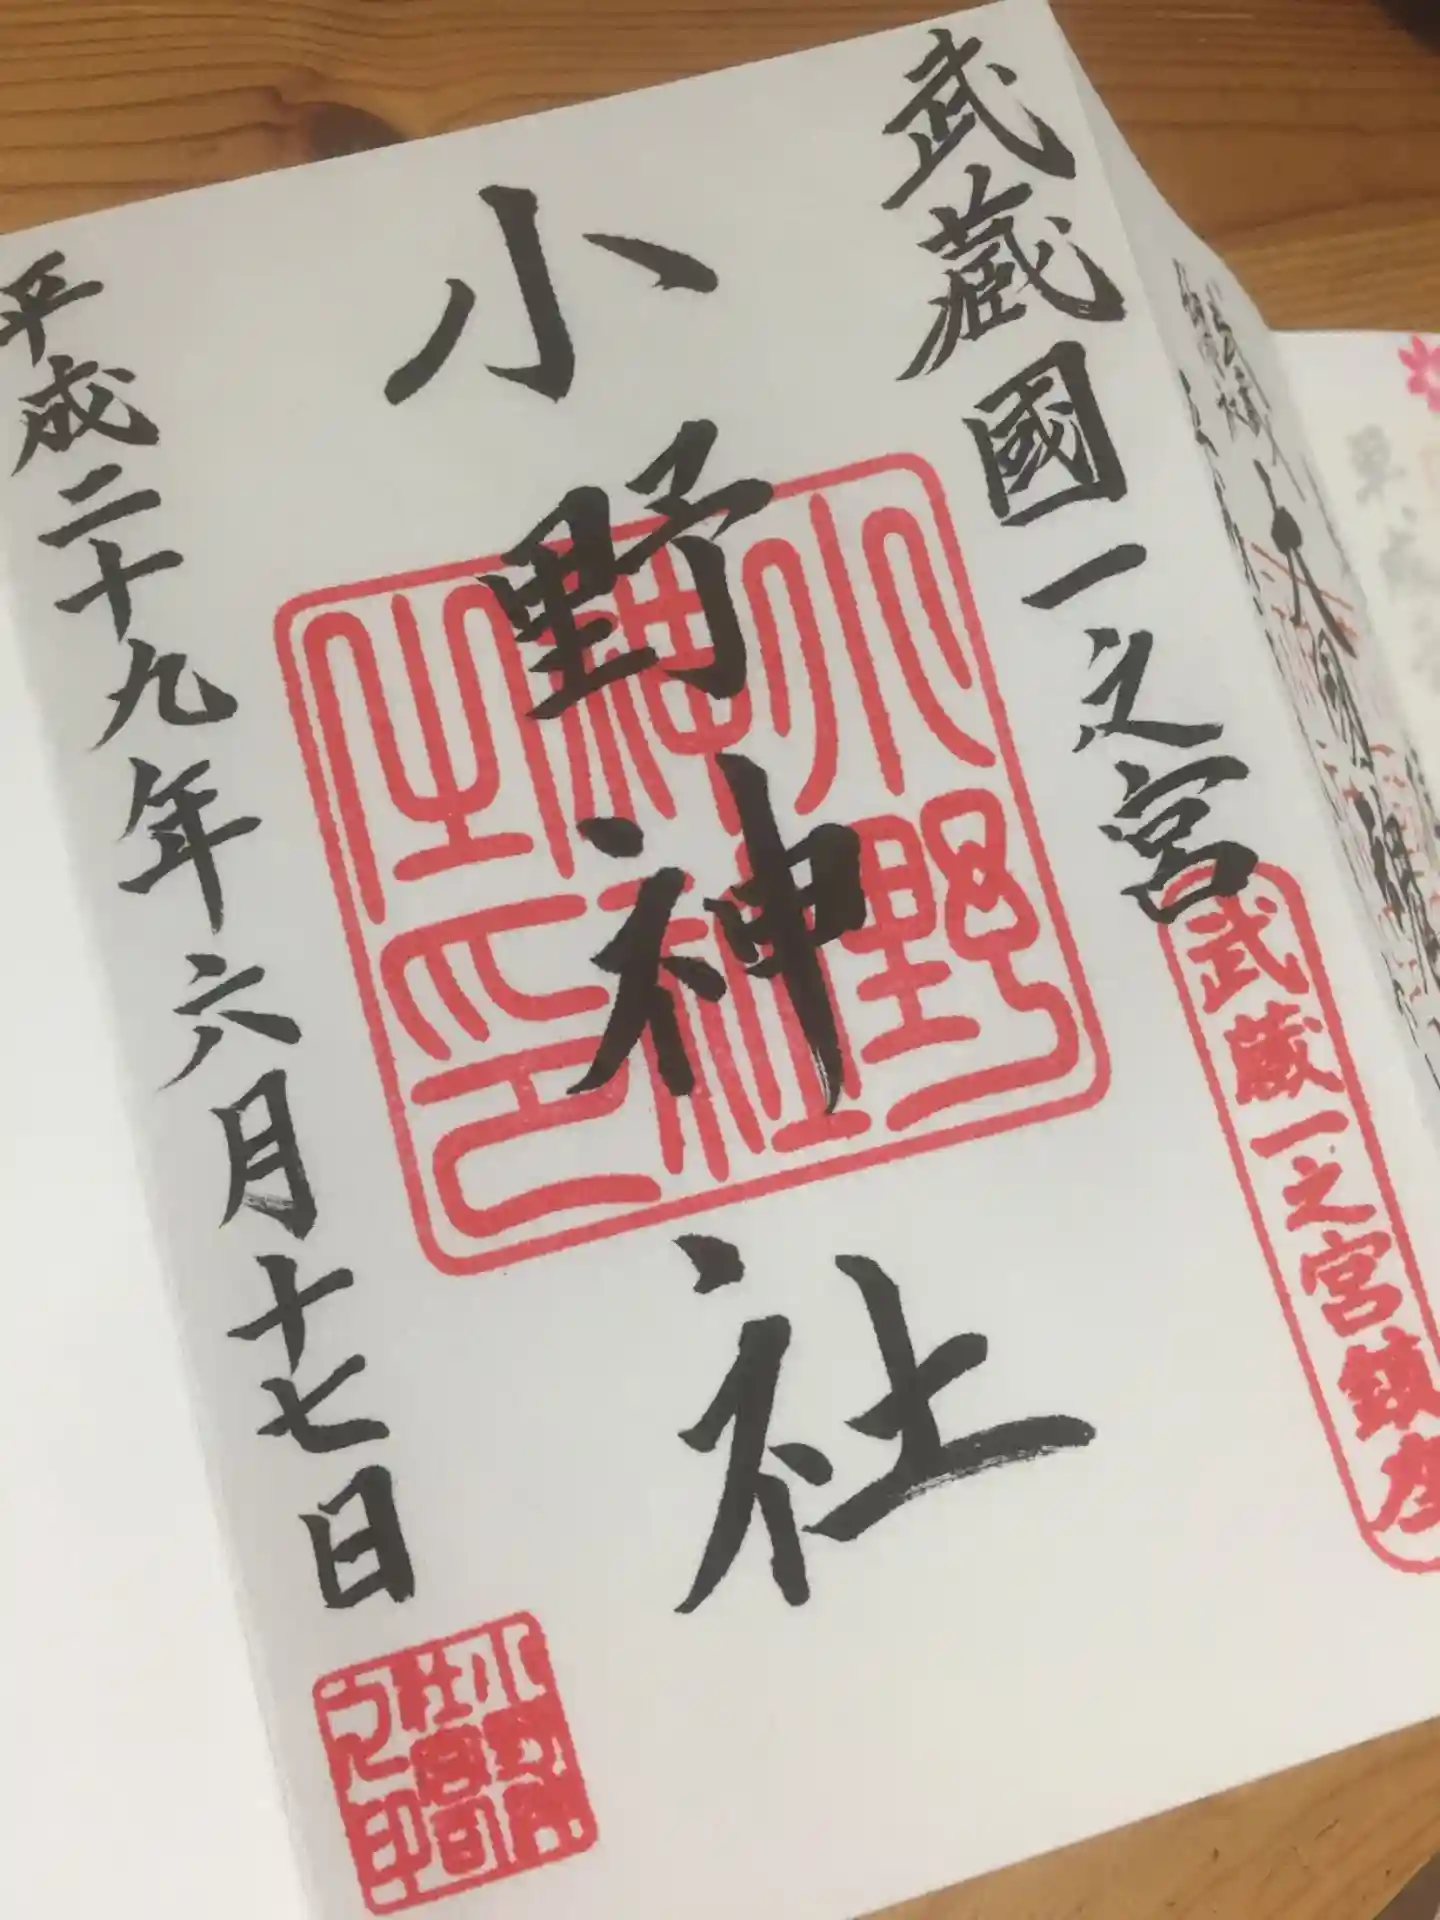 武蔵國一之宮
武蔵一之宮鎮座
小野神社
小野神社之印
平成二十九年六月十七日
小野神社宮司之印